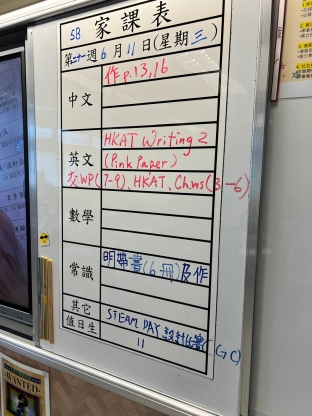 5B 家課表
第二十一週 6月11日(星期三)
中文 作 p.13,16
英文 HKAT Writing 2
(Pink Paper)
交WP(7-9)、HKAT、Ch.ws(3-6)
數學
常識 明帶書(6冊)及作
其它 STEAM DAY
值日生 11
(GC)
WANTED